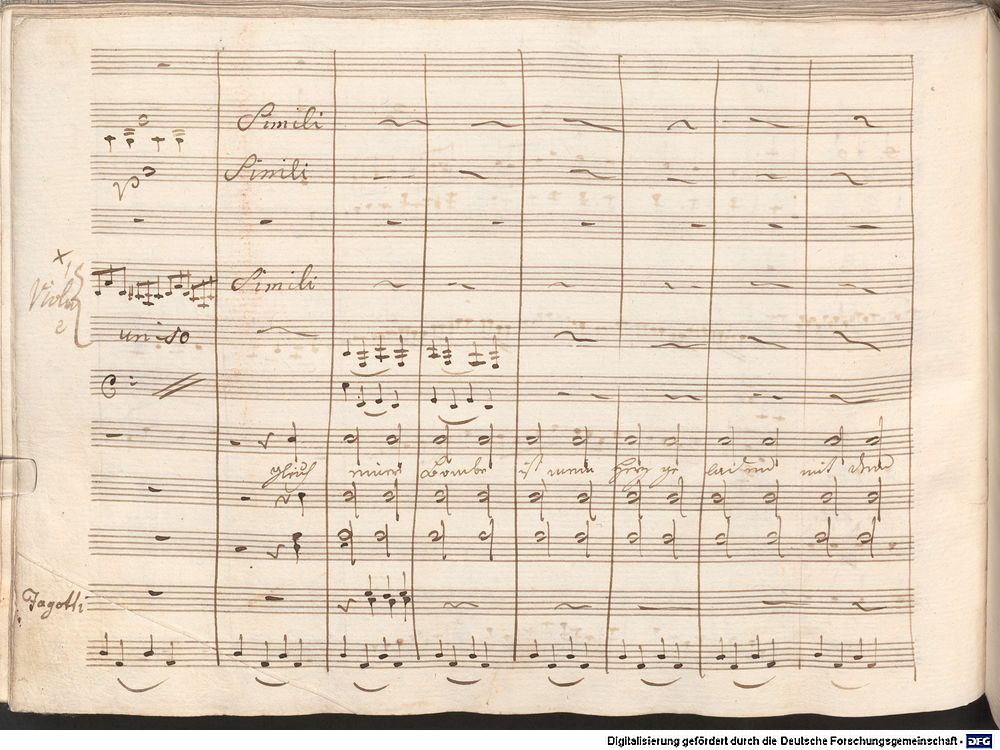 Simili
Simili
Violi Simili
e
uniso
gleich einer Bombe ist mein Herz ge laden mit
Fagotti
Digitalisierung gefördert durch die Deutsche Forschungsgemeinschaft - DFG